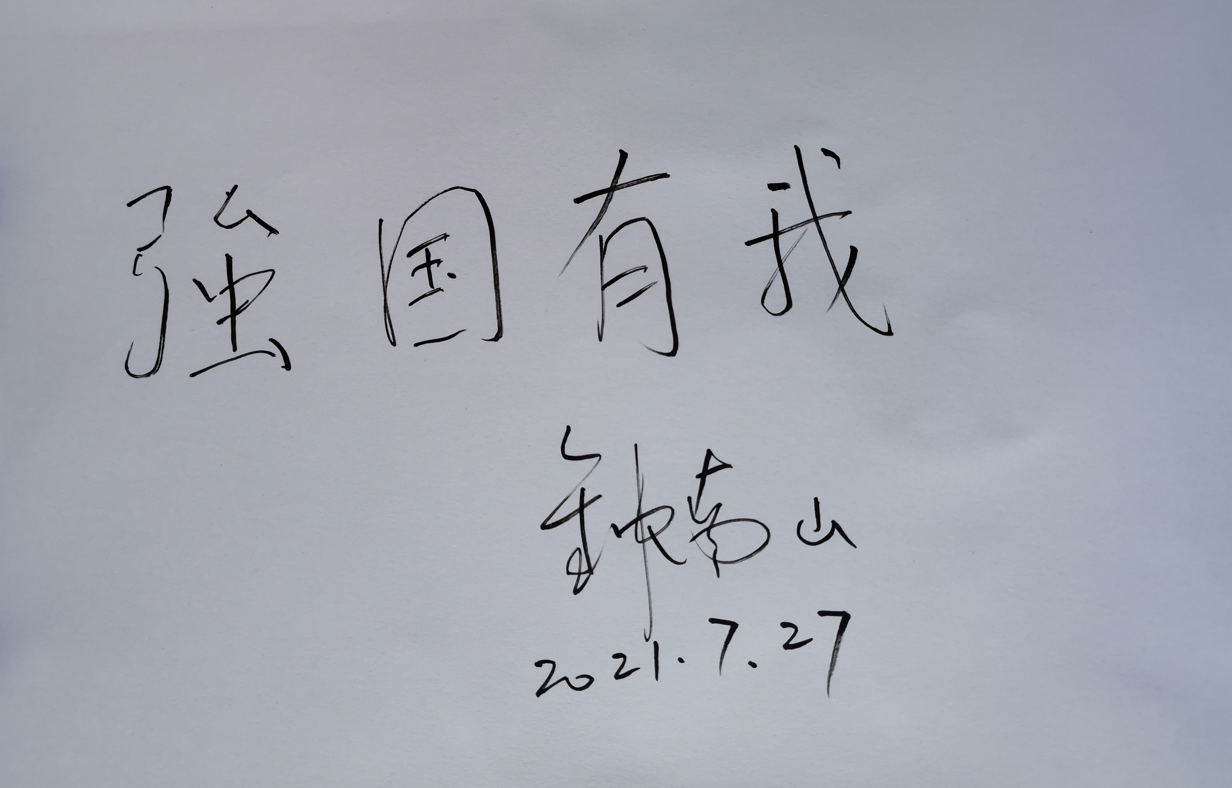 強国有我
钟南山
2021.7.27